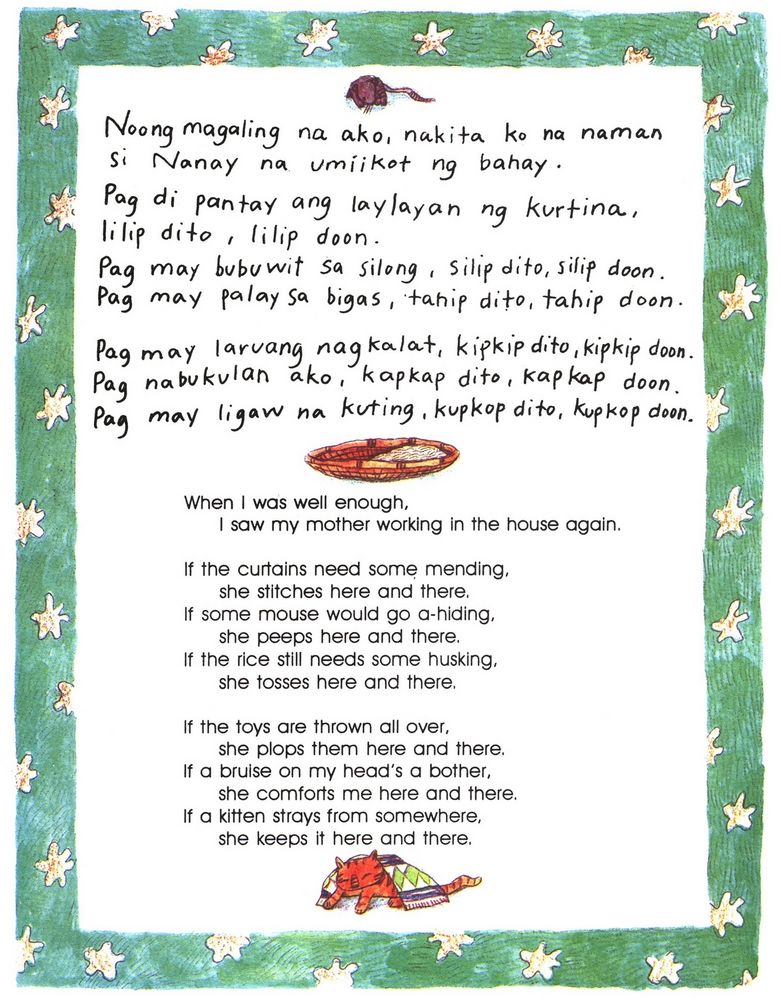 Noong magaling na ako, nakita ko na naman
si Nanay na umiikot ng bahay.
Pag di pantay ang laylayan ng kurtina,
lilip dito, lilip doon.
Pag may bubuwit sa silong, silip dito, silip doon.
Pag may palay sa bigas, tahip dito, tahip doon.
Pag may laruang nagkalat, kipkip dito, kipkip doon.
Pag nabukulan ako, kapkap dito, kapkap doon.
Pag may ligaw na kuting, kupkop dito, kupkop doon.
When I was well enough,
I saw my mother working in the house again.
If the curtains need some mending,
she stitches here and there.
If some mouse would go a-hiding,
she peeps here and there.
If the rice still needs some husking,
she tosses here and there.
If the toys are thrown all over,
she plops them here and there.
If a bruise on my head's a bother,
she comforts me here and there.
If a kitten strays from somewhere,
she keeps it here and there.